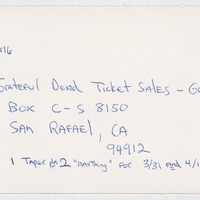 Grateful Dead Ticket Sales -
Box C-S 8150
San Rafael, CA
94912
1 Taper 2 "Anything" for 3/31 and 4/1